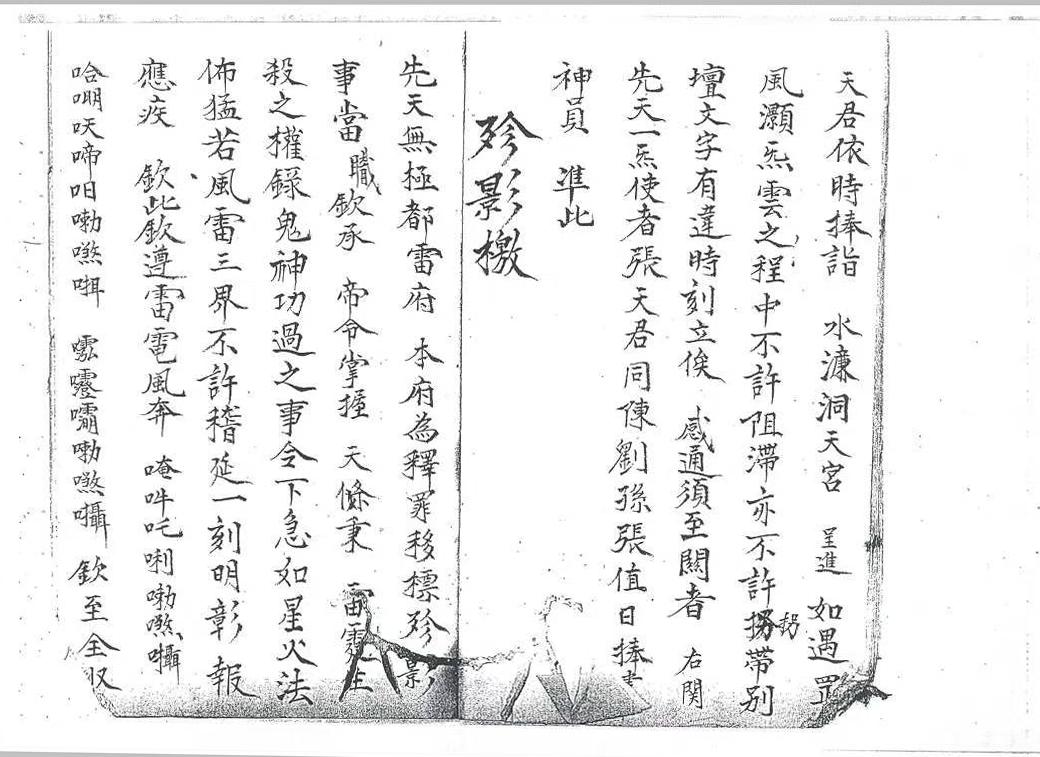 天君依時捧詣 水濂洞天宮 呈進 如遇罡
風灝炁雲之程中不許阻滯亦不許拐帶別
壇文字有違時刻立俟 感通須至關者 右関
先天一炁使者張天君同陳劉孫張值日捧
神員 準此
殄影檄
先天無極都雷府 本府為釋罪移標殄影
事當職欽承 帝令掌握 天條秉 雷霆主
殺之權錄鬼神功過之事令下急如星火法
佈猛若風雷三界不許稽延一刻明彰報
應疾 欽此欽遵雷電風奔 唵吽吒唎嘞
哈啼呬嘞 嘞 欽至全収